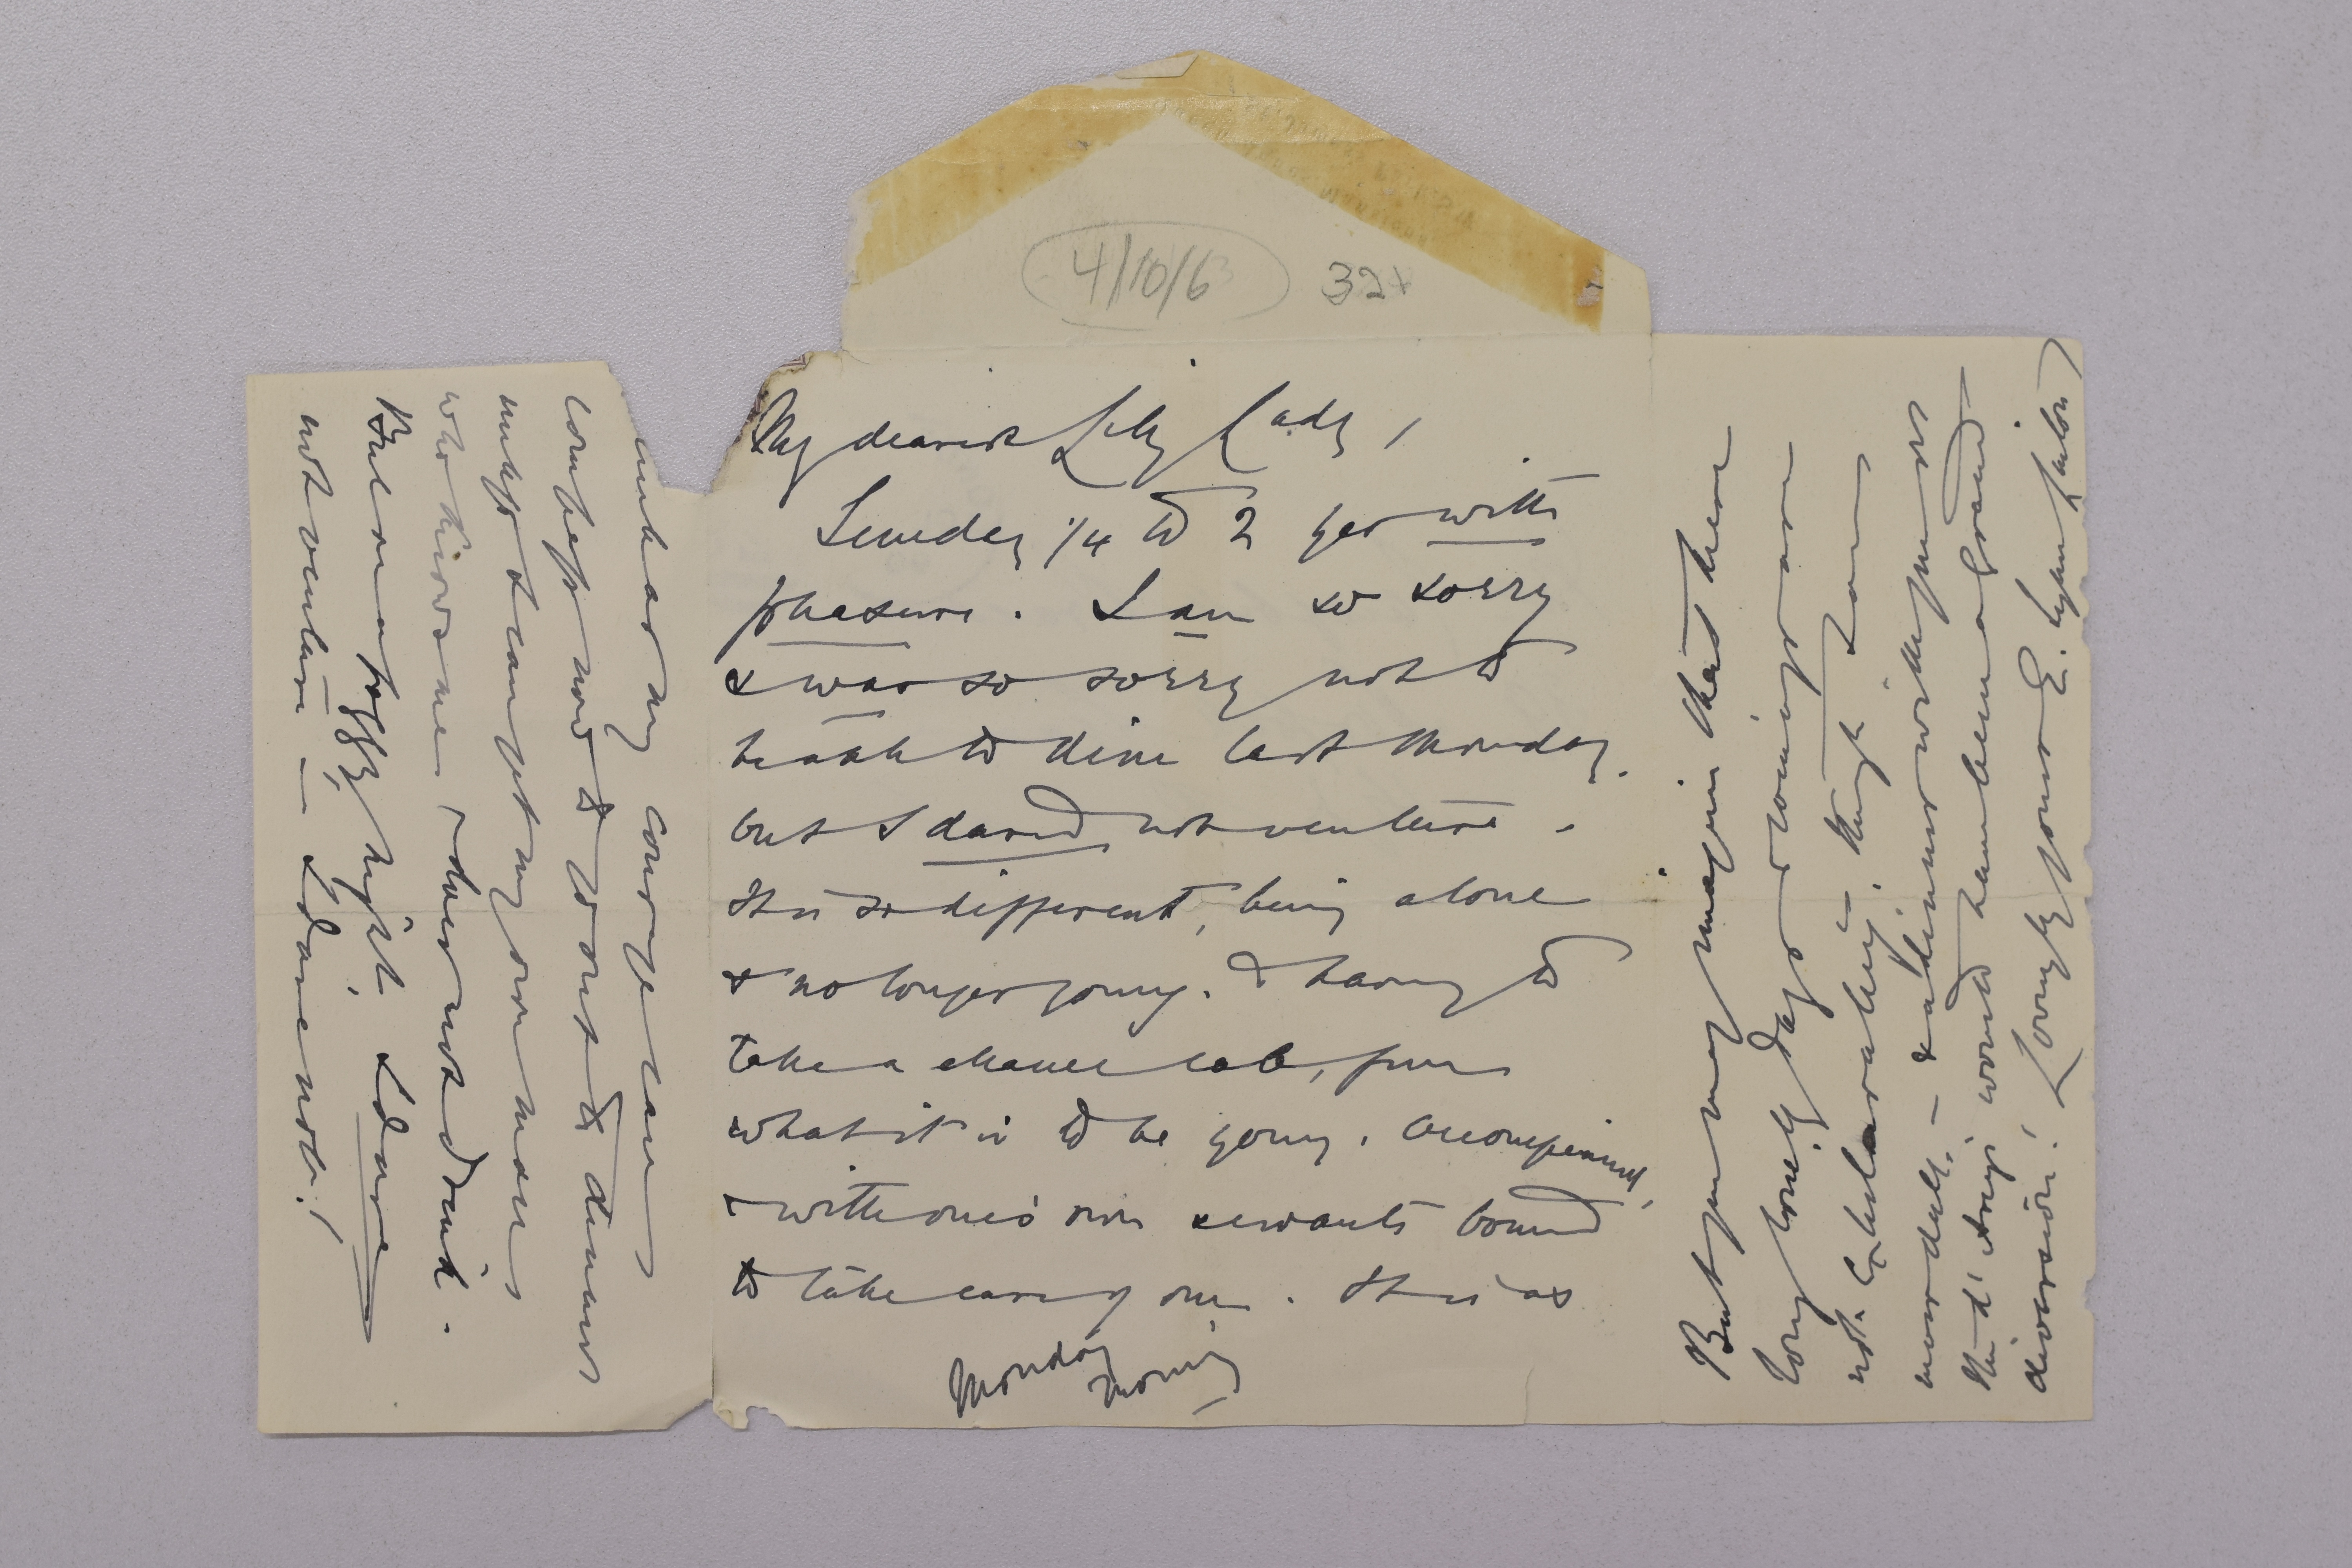 4/10/6 32
My dearest Lily Lady,
Sunday 1/4 to 2 yes with
pleasure. I am so sorry
& was so sorry not to
be able to dine last Monday.
but I dared not venture.
It is so different, being alone
& no longer young. & having to
take a chance cab, from
what it is to be young, accompanied,
& with one's own servants bound
to take care of one. It is as
Monday
morning
much as my courage can
compass now to go out to dinners
unless I can get my own man
who knows me, & does not drink.
But on a foggy night, I dare
not venture — I dare not!
But you may imagine that these
long lonely days & evenings are
not exhilarating, though I am
never dull. — & a dinner with
would have been a
diversion! Lovingly yours E. Lynn Linton